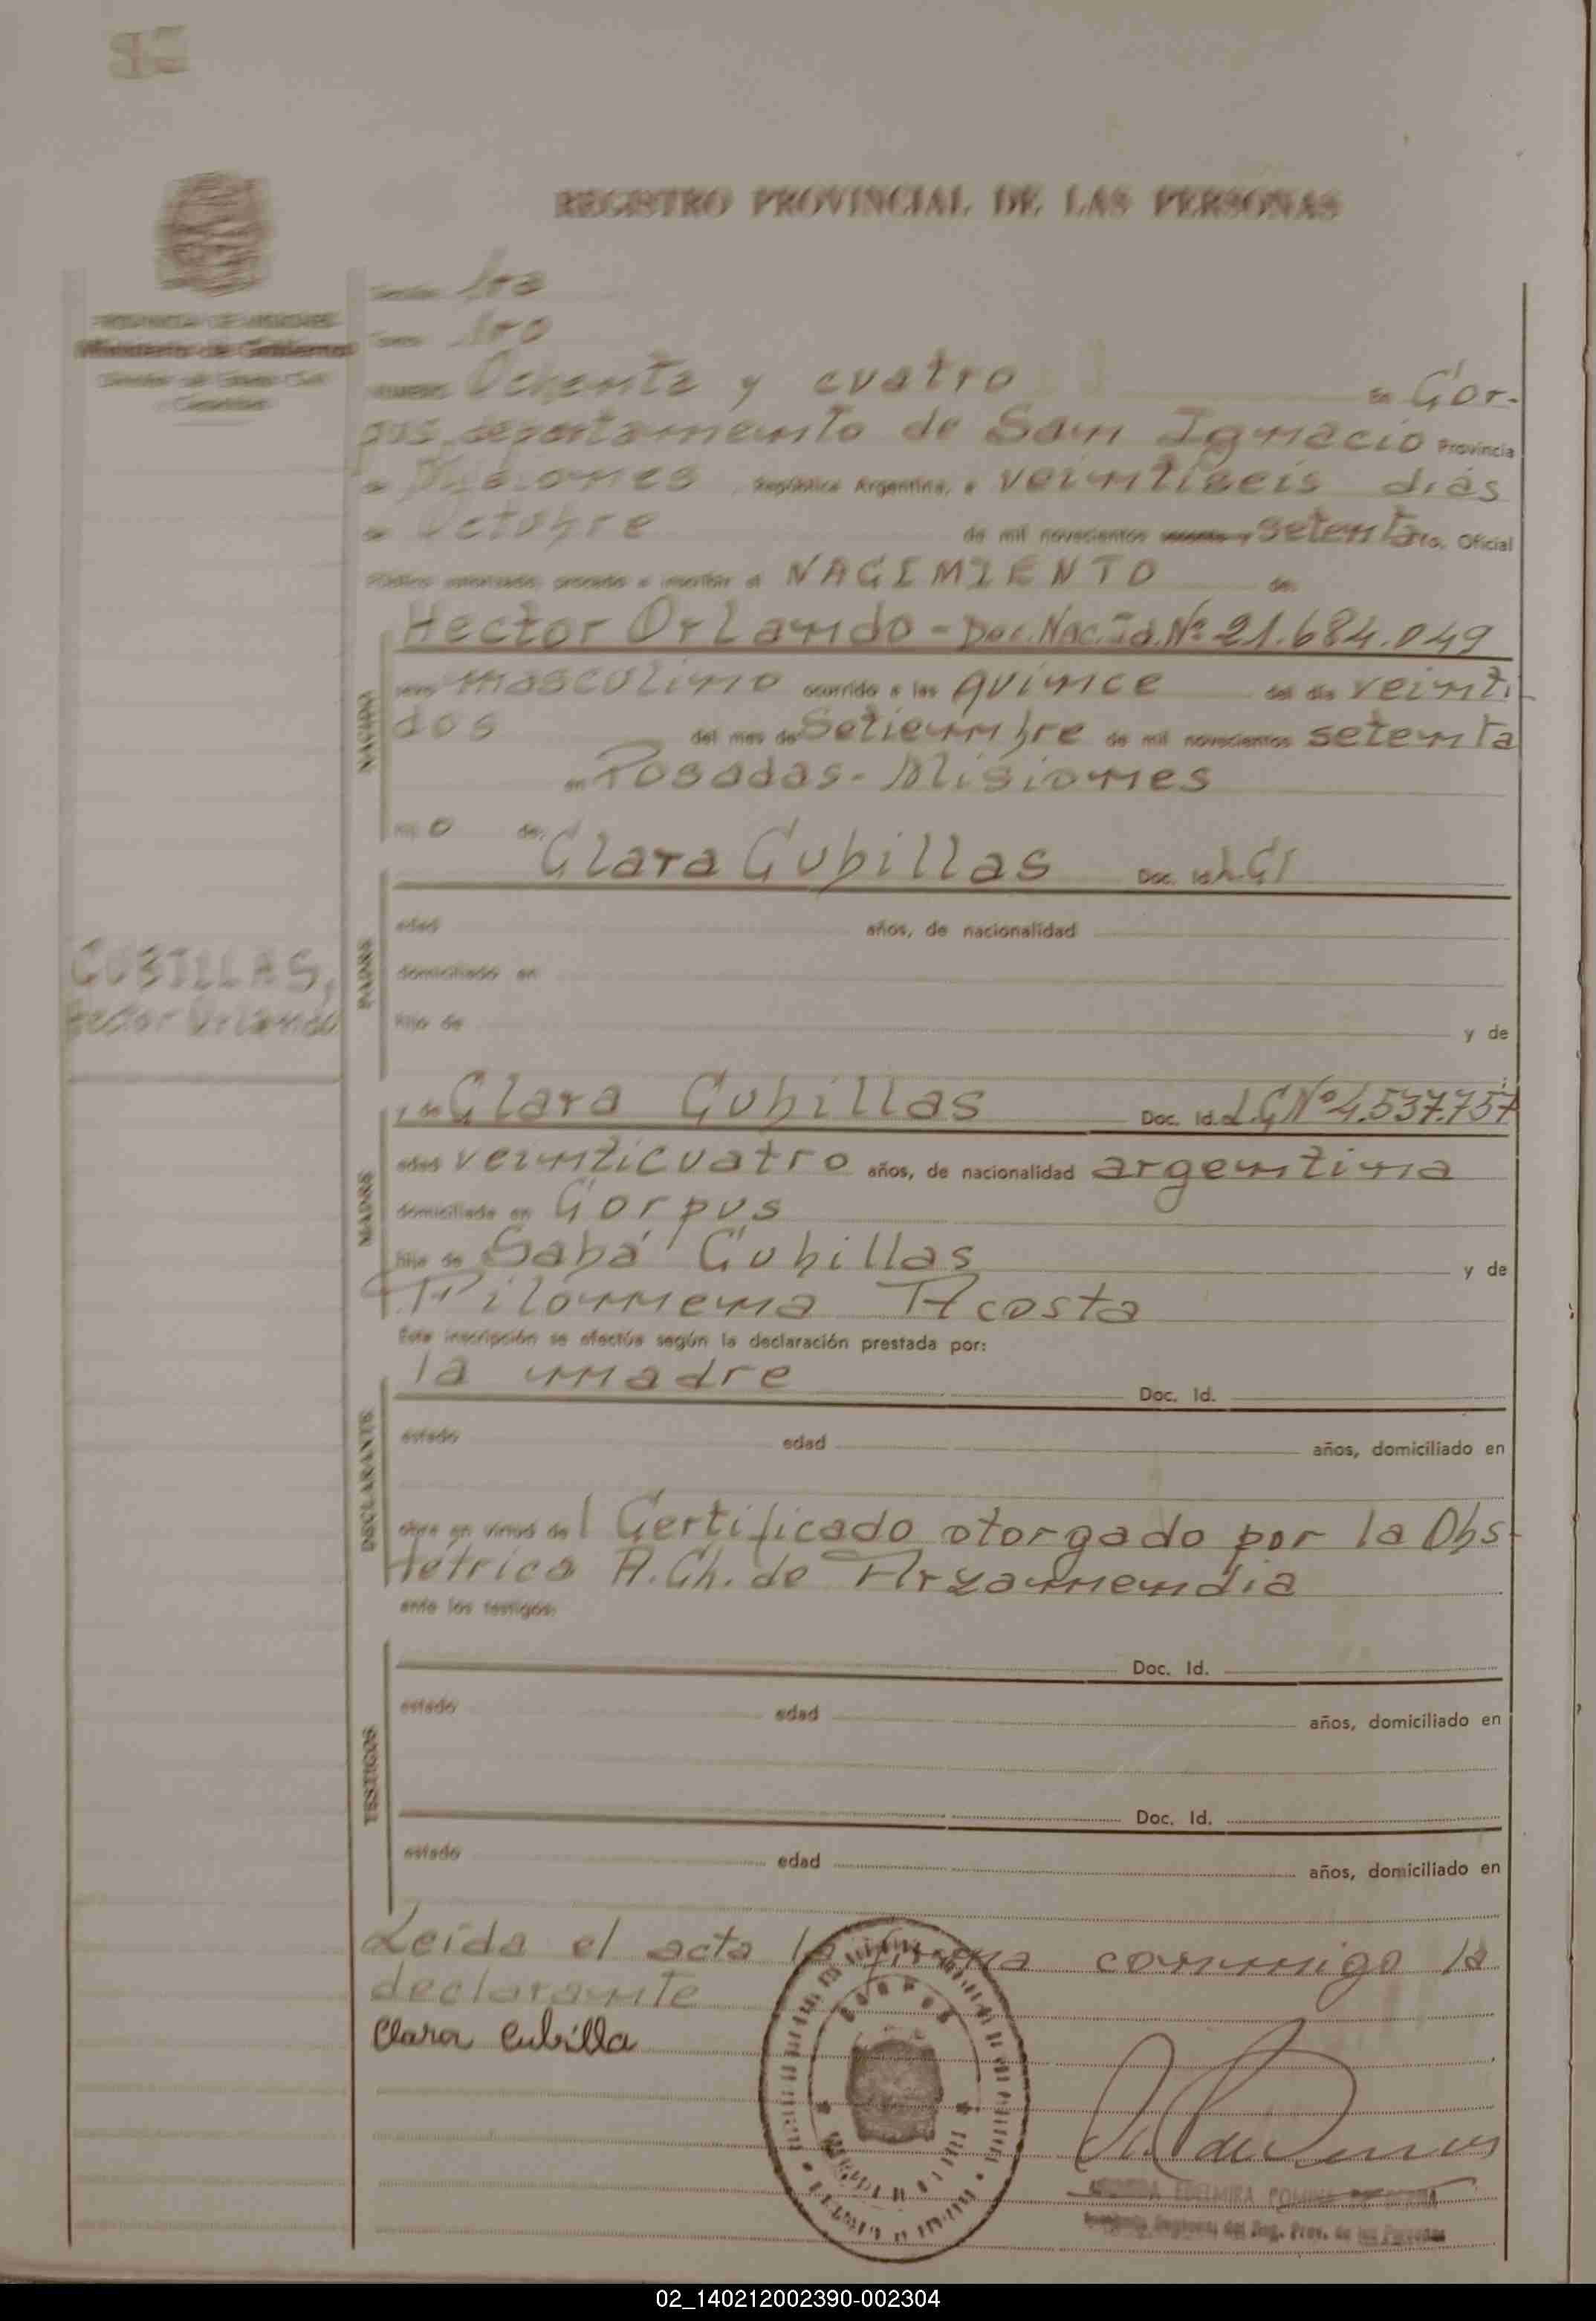 REGISTRO PROVINCIAL DE LAS PERSONAS
PROVINCIA DE MISIONES
Ministerio de Gobierno
Sección 1ra
Tomo 1ro
Ochenta y cuatro En Cor-
pus, departamento de San Ignacio Provincia
de Misiones República Argentina, a veintiseis dias
de Octubre de mil novecientos sesenta y setenta Yo, Oficial
Público autorizado, procedo a inscribir el NACIMIENTO de:
NACIDO
Hector Orlando - Doc. Nac. Id. Nº 21.684.049
sexo masculino ocurrido a las quince del día veinti-
dos del mes de Setiembre de mil novecientos setenta
en Posadas - Misiones
hijo de:
PADRE
Clara Cubillas Doc. Id.
edad años, de nacionalidad
domiciliado en
hijo de y de
CUBILLAS,
Hector Orlando
MADRE
y de Clara Cubillas Doc. Id. L.C Nº 4.537.757
edad veinticuatro años, de nacionalidad argentina
domiciliada en Corpus
hija de Sabá Cubillas y de
Filomena Acosta
Esta inscripción se efectúa según la declaración prestada por:
DECLARANTE
la madre Doc. Id.
estado edad años, domiciliado en
obra en virtud del Certificado otorgado por la Obs-
tétrica A. Ch. de Arzamendia
ante los testigos:
TESTIGOS
Doc. Id.
estado edad años, domiciliado en
Doc. Id.
estado edad años, domiciliado en
Leída el acta la firma conmigo la
declarante
Clara Cubilla
CORPUS
EDELMIRA
Reg. Prov. de las Personas
02_140212002390-002304